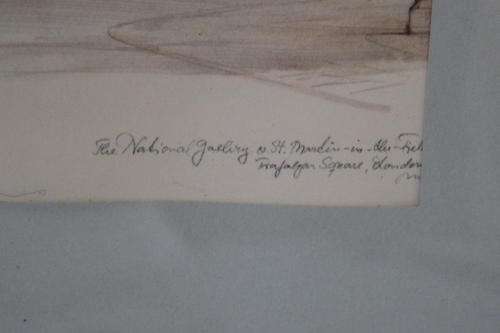 The National Gallery & St. Martin-in-the-Fiel
Trafalgar Square, London